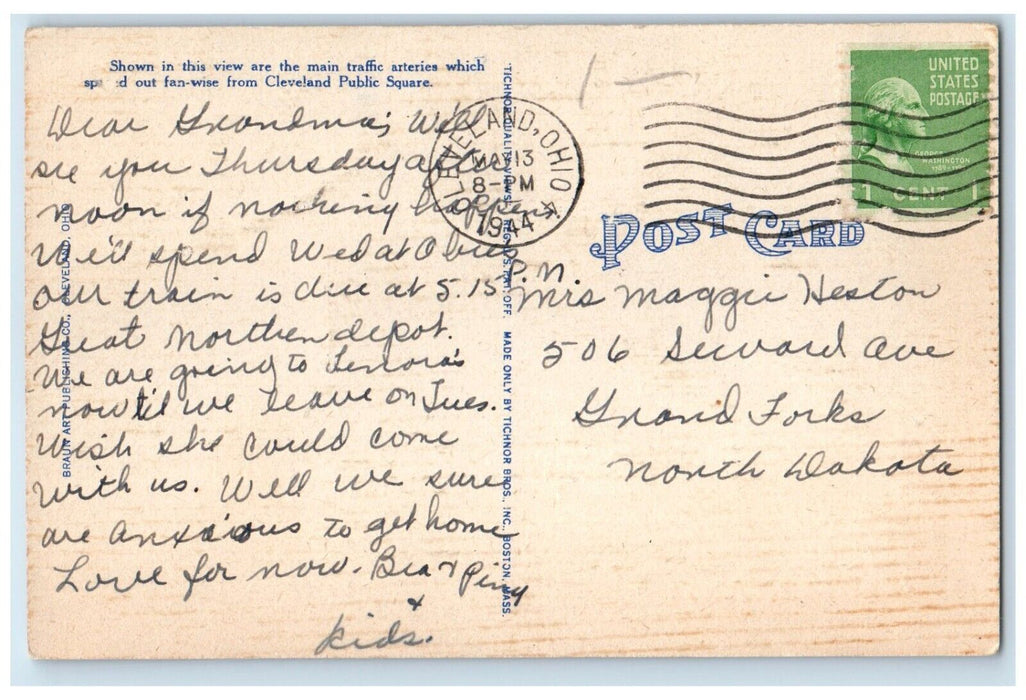 Shown in this view are the main traffic arteries which
sp d out fan-wise from Cleveland Public Square.
Dear Grandma; Will
see you Thursday after
noon if nothing
We'll spend Wed at
our train is due at 5.15 P.M.
Great Northen depot.
We are going to Lenora's
now til we leave on Tues.
Wish she could come
with us. Well we sure
are anxious to get home
Love for now. Bea &
& kids.
BRAUN ART PUBLISHING CO., CLEVELAND, OHIO
TICHNOR QUALITY VIEWS, REG. U. S. PAT. OFF. MADE ONLY BY TICHNOR BROS., INC., BOSTON, MASS.
1 —
CLEVELAND, OHIO
MAY 13
8-PM
1944
UNITED
STATES
POSTAGE
GEORGE
WASHINGTON
1 CENT 1
POST CARD
Mrs Maggie Heston
506 Seward Ave
Grand Forks
North Dakota